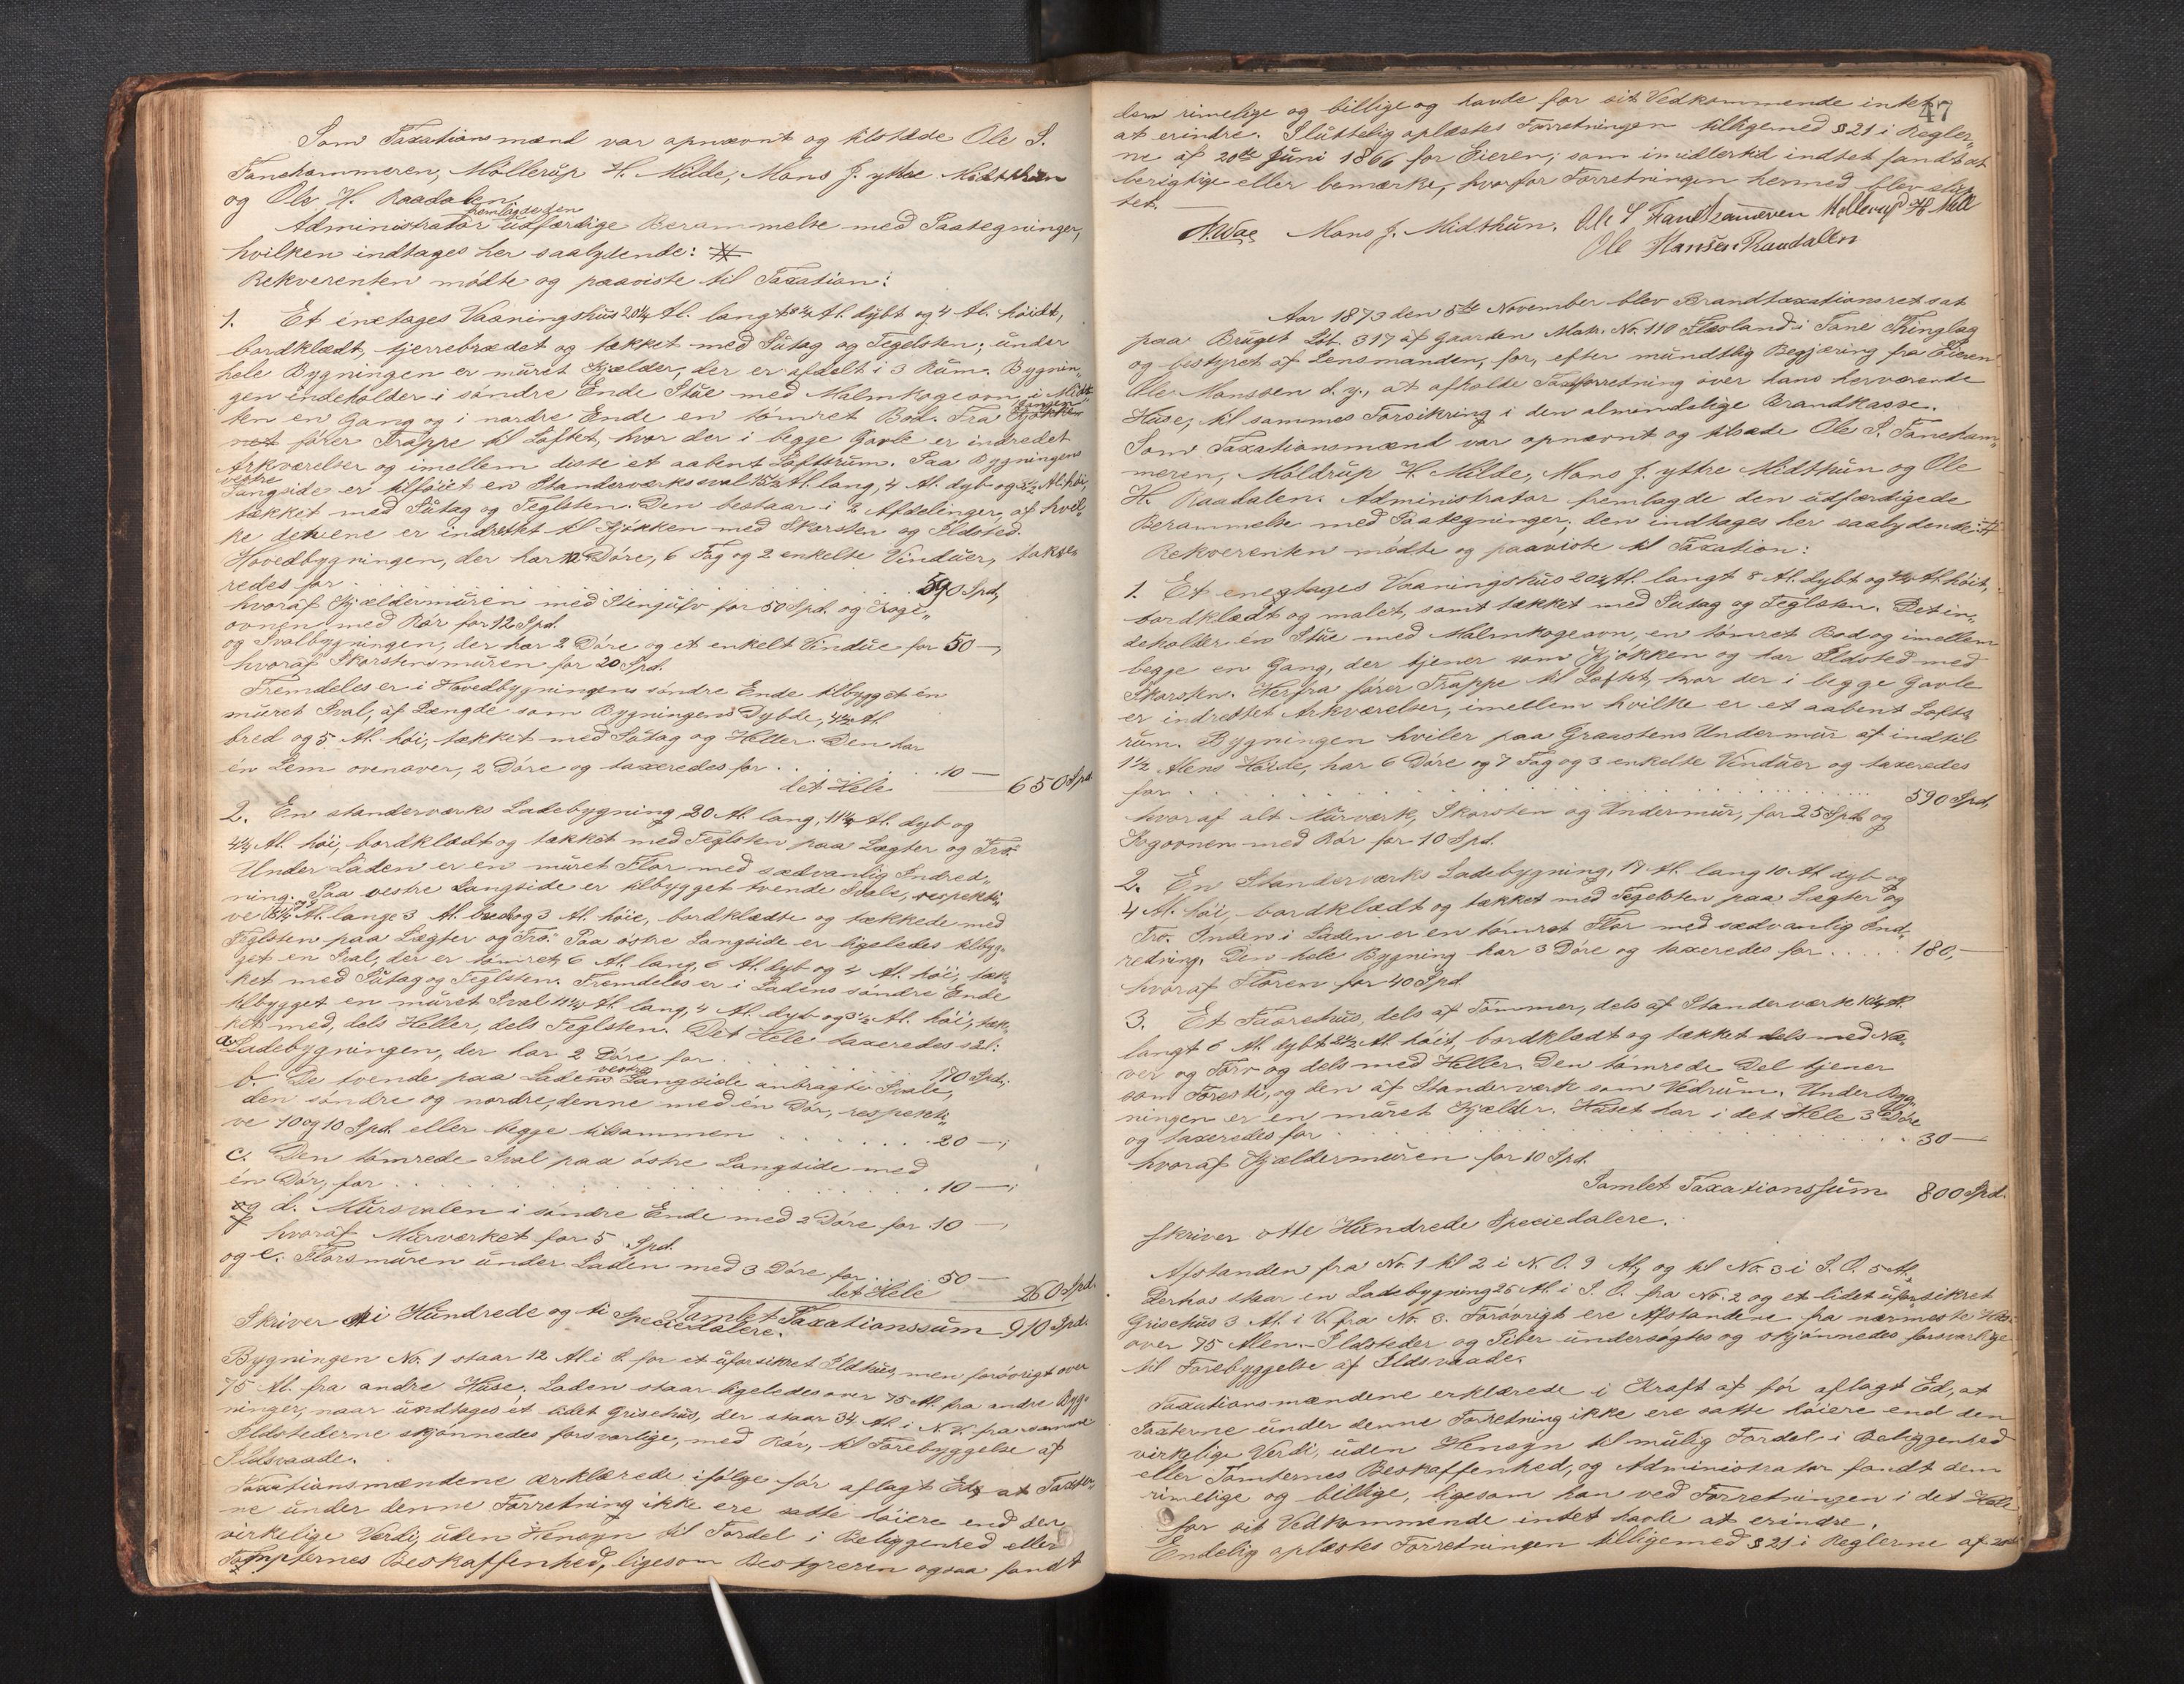 Som Taxationsmænd var opnævnt og tilstæde Ole S.
Fanehammeren, Møllerup H. Milde, Mons J. yttre Midtthun
og Ole H. Raadalen.
fremlagde den
Administrator udfærdige Berammelse med Paategninger,
hvilken indtages her saalydende:
Rekverenten mødte og paaviste til Taxation:
1. Et énetages Vaaningshus 20¼ Al. langt 8¼ Al. dybt og 4 Al. høidt,
bordklædt, tjerrebrædet og tækket med Sutag og Tegelsten; under
hele Bygningen er muret Kjælder, der er afdelt i 3 Rum. Bygnin„
gen indeholder i søndre Ende Stue med Malmkogeovn, i Midt
ten en Gang og i nordre Ende en tømret Bod. Fra Gangen Kjøkke
net fører Trappe til Loftet, hvor der i begge Gavle er indredet
Arkværelser og imellem disse et aabent Loftsrum. Paa Bygningens
vestre
Langside er tilføiet en Standerværkssval 15½ Al. lang, 4 Al. dyb og 3½ Al. høi,
tækket med Sutag og Teglsten. Den bestaar i 2 Afdelinger, af hvil„
ke den ene er indrettet til Kjøkken med Skorsten og Ildsted.
Hovedbygningen, der har 12 Døre, 6 Fag og 2 enkelte Vinduer, takse
redes for . . . . . . 590 Spd,
hvoraf Kjældermuren med Stengulv for 50 Spd. og Koge„
ovnen med Rør for 12 Spd.
og Svalbygningen, der har 2 Døre og et enkelt Vindue for 50 —,
hvoraf Skorstensmuren for 20 Spd.
Fremdeles er i Hovedbygningens søndre Ende tilbygget en
muret Sval, af Længde som Bygningens Dybde, 4½ Al.
bred og 5 Al. høi, tækket med Sutag og Heller. Den har
én Lem ovenover, 2 Døre og taxeredes for . . . . 10 —
det Hele 650 Spd
2. En standerværks Ladebygning 20 Al. lang, 11¼ Al. dyb og
4¼ Al. høi, bordklædt og tækket med Teglsten paa Lægter og Tro.
Under Laden er en muret Flor med sædvanlig Indred„
ning. Paa vestre Langside er tilbygget tvende Svale, respekti
ve Al. lange 3 Al. brede og 3 Al. høie, bordklædte og tækkede med
Teglsten paa Lægter og Tro. Paa østre Langside er ligeledes tilbyg„
get en Sval, der er tømret, 6 Al. lang, 6 Al. dyb og 4 Al. høi, tæk„
ket med Sutag og Teglsten. Fremdeles er i Ladens søndre Ende
tilbygget en muret Sval 11¼ Al. lang, 4 Al. dyb og 3½ Al. høi, tæk„
ket med, dels Heller, dels Teglsten. Det Hele taxeredes saal:
a. Ladebygningen, der har 2 Døre for . . . 170 Spd;
b. De tvende paa Ladens vestre Langside anbragte Svale,
den søndre og nordre, denne med én Dør, respekti„
ve 10 og 10 Spd. eller begge tilsammen . . . . . 20 —;
c. Den tømrede Sval paa østre Langside med
én Dør, for . . . . . . . . 10 —;
og d. Mursvalen i søndre Ende med 2 Døre for 10 —,
hvoraf Murværket for 5 Spd.
og e. Florsmuren under Laden med 3 Døre for . . 50 —
det Hele 260 Spd.
Samlet Taxationssum 910 Spd.
Skriver Ni Hundrede og ti Speciedalere.
Bygningen No. 1 staar 12 Al. i S. for et uforsikret Ildhus, men forøvrigt over
75 Al. fra andre Huse. Laden staar ligeledes over 75 Al. fra andre Byg„
ninger, naar undtages et lidet Grisehus, der staar 34 Al. i N. V. fra samme
Ildstederne skjønnedes forsvarlige, med Rør, til Forebyggelse af
Ildsvaade.
Taxationsmændene erklærede ifølge før aflagt Ed, at Taxter„
ne under denne Forretning ikke ere satte høiere end den
virkelige Værdi, uden Hensyn til Fordel i Beliggenhed eller
Tomternes Beskaffenhed, ligesom Bestyreren ogsaa fandt
47
dem rimelige og billige og havde for sit Vedkommende intet
at erindre. Sluttelig oplæstes Forretningen tilligemed §21 i Regler„
ne af 20de Juni 1866 for Eieren, som imidlertid indtet fandt at
berigtige eller bemærke, hvorfor Forretningen hermed blev slut
tet.
Mons J. Midthun. Ole S Mollerup H Mill
Ole Hansen Raadalen
Aar 1873 den 5te November blev Brandtaxationsret sat
paa Bruget Løb. 317 af Gaarden Matr. No. 110 Flæsland i Fane Thinglag
og bestyret af Lensmanden, for, efter mundtlig Begjæring fra Eieren
Ole Monssen d. y., at afholde Taxtforretning over hans herværende
Huse, til sammes Forsikring i den almindelige Brandkasse.
Som Taxationsmænd var opnævnt og tilstæde Ole S. Faneham„
meren, Møldrup H. Milde, Mons J. yttre Midthun og Ole
H. Raadalen. Administrator fremlagde den udfærdigede
Berammelse med Paategninger, den indtages her saalydende:
Rekverenten mødte og paaviste til Taxation:
1. Et enetages Vaaningshus 20¼ Al. langt 8 Al. dybt og 4¼ Al. høit,
bordklædt og malet, samt tækket med Sutag og Teglsten. Det in„
deholder én Stue med Malmkogeovn, en tømret Bod og imellem
begge en Gang, der tjener som Kjøkken og har Ildsted med
Skorsten. Herfra fører Trappe til Loftet, hvor der i begge Gavle
er indrettet Arkværelser, imellem hvilke er et aabent Lofts
rum. Bygningen hviler paa Graastens Undermur af indtil
1½ Alens Høide, har 6 Døre og 7 Fag og 3 enkelte Vinduer og taxeredes
for . . . . . . . . 590 Spd,
hvoraf alt Murværk, Skorsten og Undermur, for 25 Spd. og
Kogovnen med Rør for 10 Spd.
2. En Standerværks Ladebygning, 17 Al. lang 10 Al. dyb og
4 Al. høi, bordklædt og tækket med Tegelsten paa Lægter og
Tro. Inden i Laden er en tømret Flor med sædvanlig Ind„
redning. Den hele Bygning har 3 Døre og taxeredes for . . . . . 180,—
hvoraf Floren for 40 Spd.
3. Et Faarehus, dels af Tømmer, dels af Standerværk 10¼ Al.
langt 6 Al. dybt 2½ Al. høit, bordklædt og tækket dels med Næ„
ver og Tørv og dels med Heller. Den tømrede Del tjener
som Foresti, og den af Standerværk som Vedrum. Under Byg„
ningen er en muret Kjælder. Huset har i det Hele 3 Døre
og taxeredes for . . . . . . . . 30 —
hvoraf Kjældermuren for 10 Spd.
Samlet Taxationssum 800 Spd.
skriver otte Hundrede Speciedalere.
Afstanden fra No. 1 til 2 i N. O. 9 Al, og til No. 3 i S. O. 5 Al.
Derhos staar en Ladebygning 25 Al. i S. O. fra No. 2 og et lidet uforsikret
Grisehus 3 Al. i V. fra No. 3. Forøvrigt ere Afstandene fra nærmeste Huse
over 75 Alen. Ildsteder og Piber undersøgtes og skjønnedes forsvarlige
til Forebyggelse af Ildsvaade.
Taxationsmændene erklærede i Kraft af før aflagt Ed, at
Taxterne under denne Forretning ikke ere satte høiere end den
virkelige Værdi, uden Hensyn til mulig Fordel i Beliggenhed
eller Tomternes Beskaffenhed, og Administrator fandt dem
rimelige og billige, ligesom han ved Forretningen i det Hele
for sit Vedkommende intet havde at erindre.
Endelig oplæstes Forretningen tilligemed §21 i Reglerne af 20de